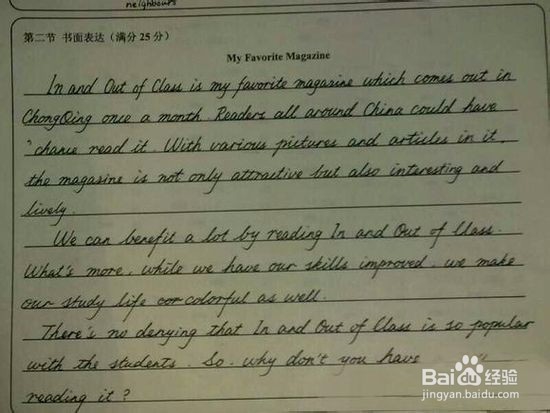 neighbours
第二节 书面表达（满分 25 分）
My Favorite Magazine
In and Out of Class is my favorite magazine which comes out in
ChongQing once a month. Readers all around China could have
chance read it. With various pictures and articles in it,
the magazine is not only attractive but also interesting and
lively.
We can benefit a lot by reading In and Out of Class.
What's more, while we have our skills improved, we make
our study life cor colorful as well.
There's no denying that In and Out of Class is so popular
with the students. So, why don't you have
reading it?
Bai du 经验
jingyan.baidu.com